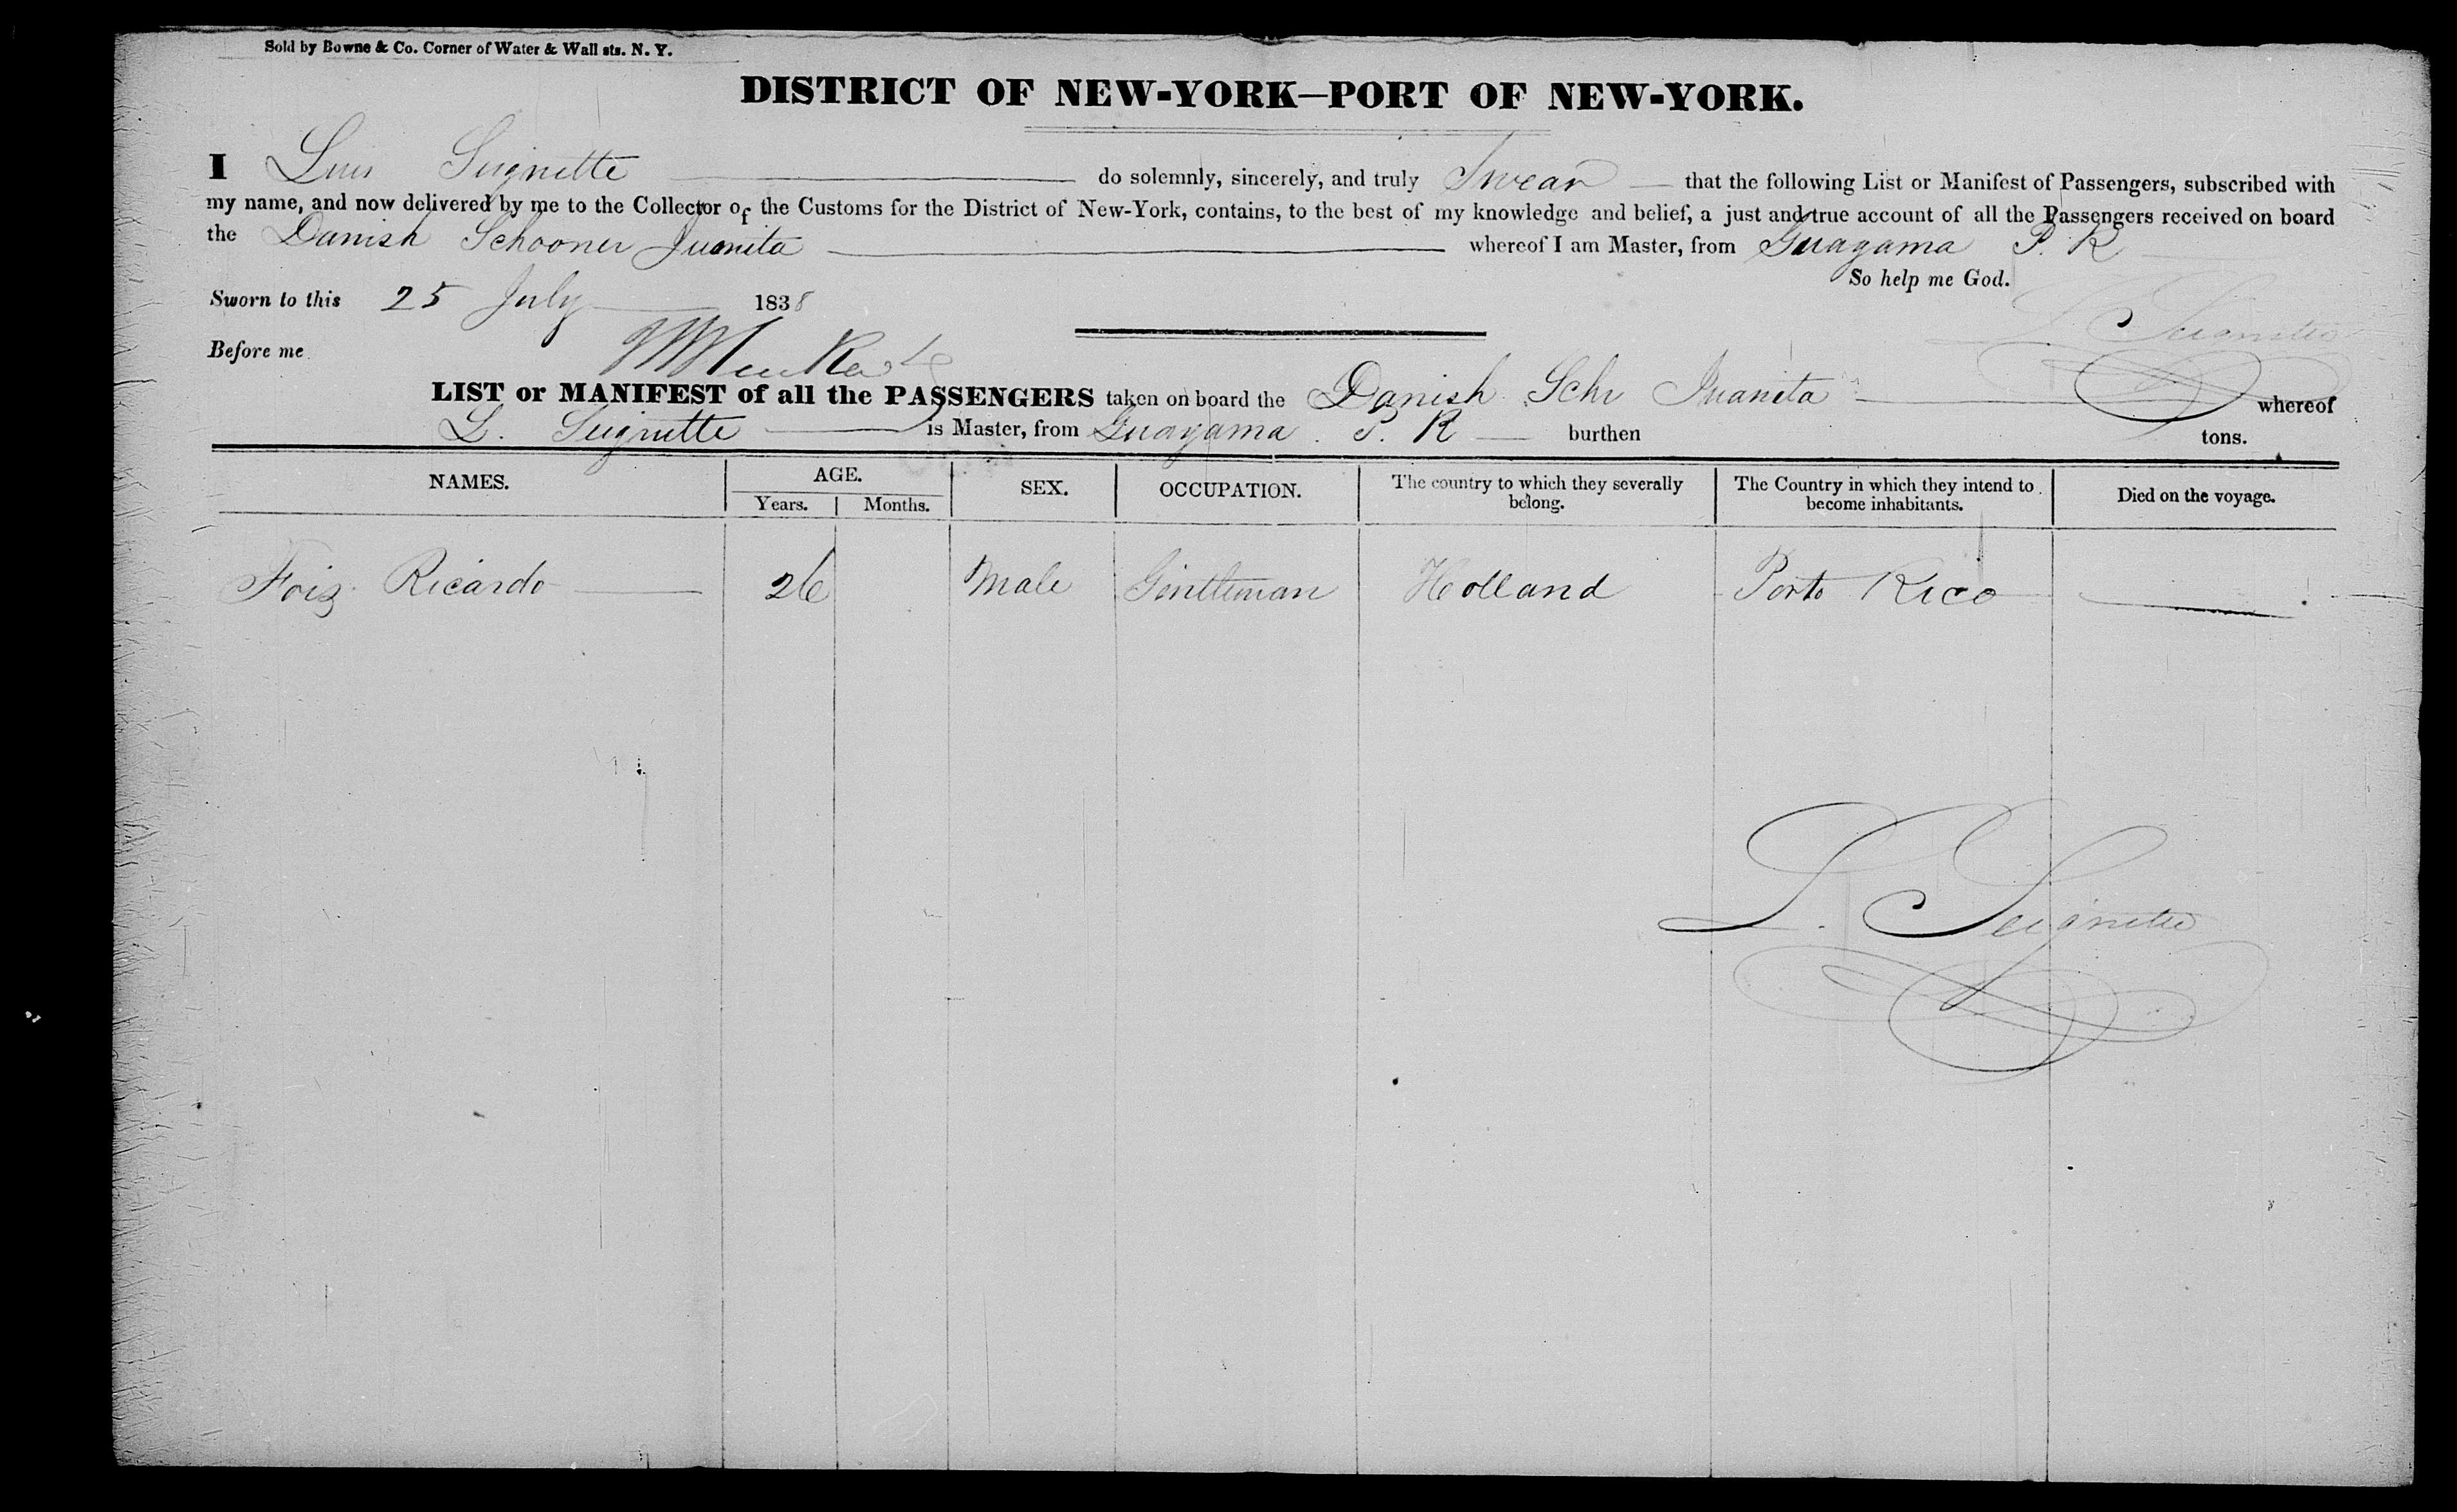 Sold by Bowne & Co. Corner of Water & Wall sts. N. Y.
DISTRICT OF NEW-YORK—PORT OF NEW-YORK.
I Luis Seignette do solemnly, sincerely, and truly Swear that the following List or Manifest of Passengers, subscribed with
my name, and now delivered by me to the Collector of the Customs for the District of New-York, contains, to the best of my knowledge and belief, a just and true account of all the Passengers received on board
the Danish Schooner Juanita whereof I am Master, from Guayama P. R
So help me God.
Sworn to this 25 July 1838
L Seignette
Before me
LIST or MANIFEST of all the PASSENGERS taken on board the Danish Schr Juanita whereof
L. Seignette is Master, from Guayama. P. R burthen tons.
NAMES. AGE. Years. Months. SEX. OCCUPATION. The country to which they severally belong. The Country in which they intend to become inhabitants. Died on the voyage.
Ricardo 26 Male Gentleman Holland Porto Rico
L. Seignette